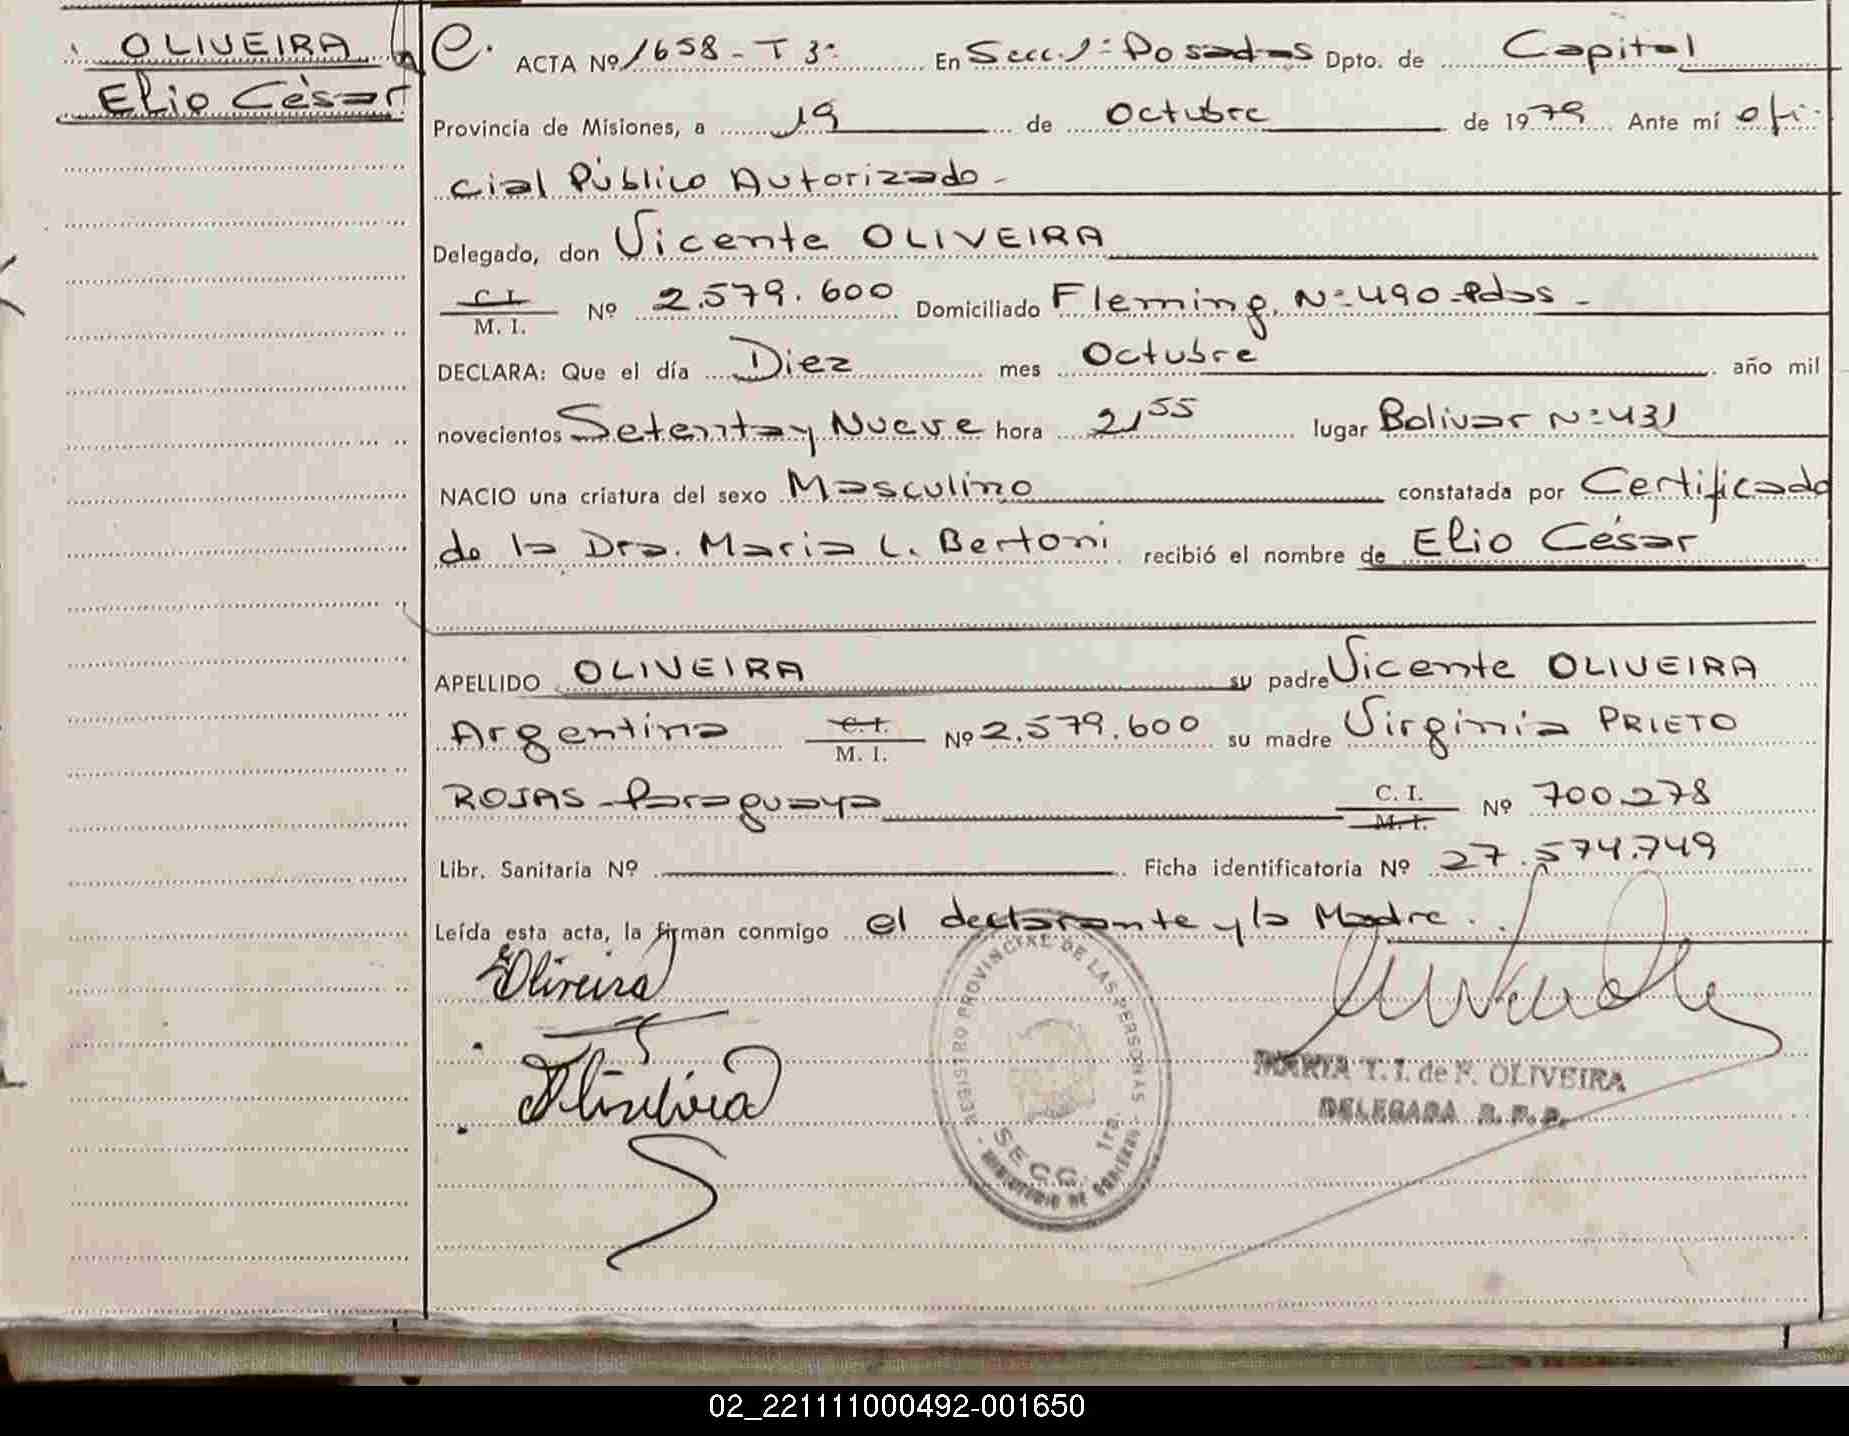 OLIVEIRA
Elio César
e. ACTA Nº 1658 - T 3º En Secc. 1ª Posadas Dpto. de Capital
Provincia de Misiones, a 19 de Octubre de 1979 Ante mí ofi-
cial Público Autorizado -
Delegado, don Vicente OLIVEIRA
C. I.
M. I. Nº 2.579.600 Domiciliado Fleming Nº 490 - Pdas -
DECLARA: Que el día Diez mes Octubre año mil
novecientos Setenta y Nueve hora 21 55 lugar Bolivar Nº 431
NACIO una criatura del sexo Masculino constatada por Certificado
de la Dra. Maria L. Bertoni recibió el nombre de Elio César
APELLIDO OLIVEIRA su padre Vicente OLIVEIRA
Argentina C. I.
M. I. Nº 2.579.600 su madre Virginia PRIETO
ROJAS - Paraguaya C. I.
M. I. Nº 700.278
Libr. Sanitaria Nº Ficha identificatoria Nº 27.574.749
Leída esta acta, la firman conmigo el declarante y la Madre.
Oliveira
REGISTRO PROVINCIAL DE LAS PERSONAS
SECC. 1ra.
MINISTERIO DE GOBIERNO
MARIA T. I. de F. OLIVEIRA
DELEGADA R. P. P.
02_221111000492-001650